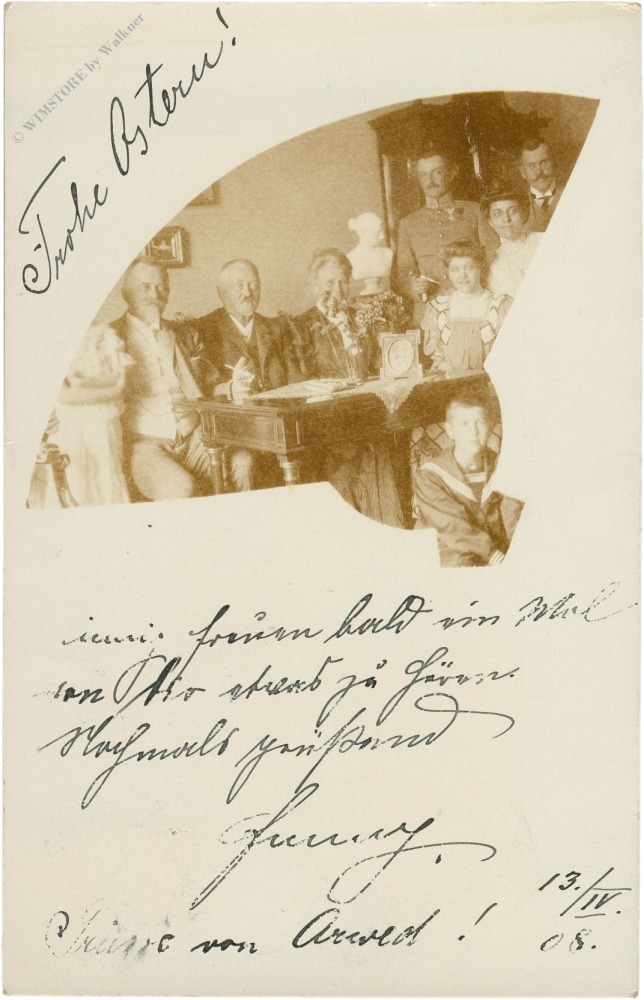 © WIMSTORE by Walkner
Frohe Ostern!
freuen bald ein Mal
von Dir etwas zu hören.
Nochmals grüßend
von Arwed!
13./IV.
08.